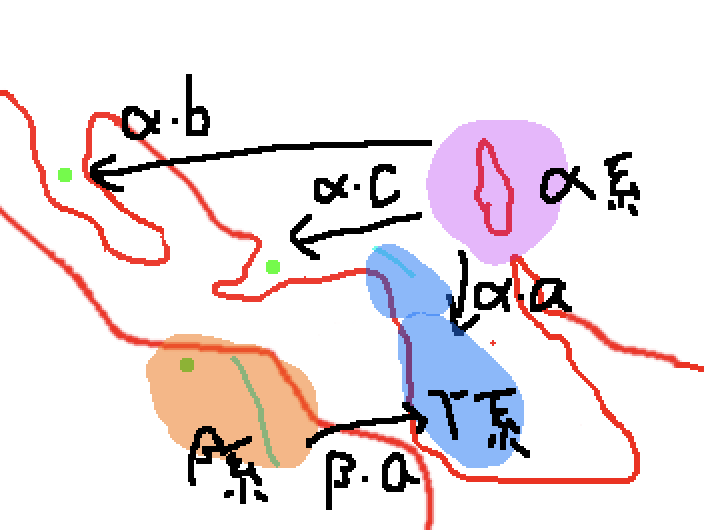 α·b
α·C
α系
α·a
γ系
β系
β·a